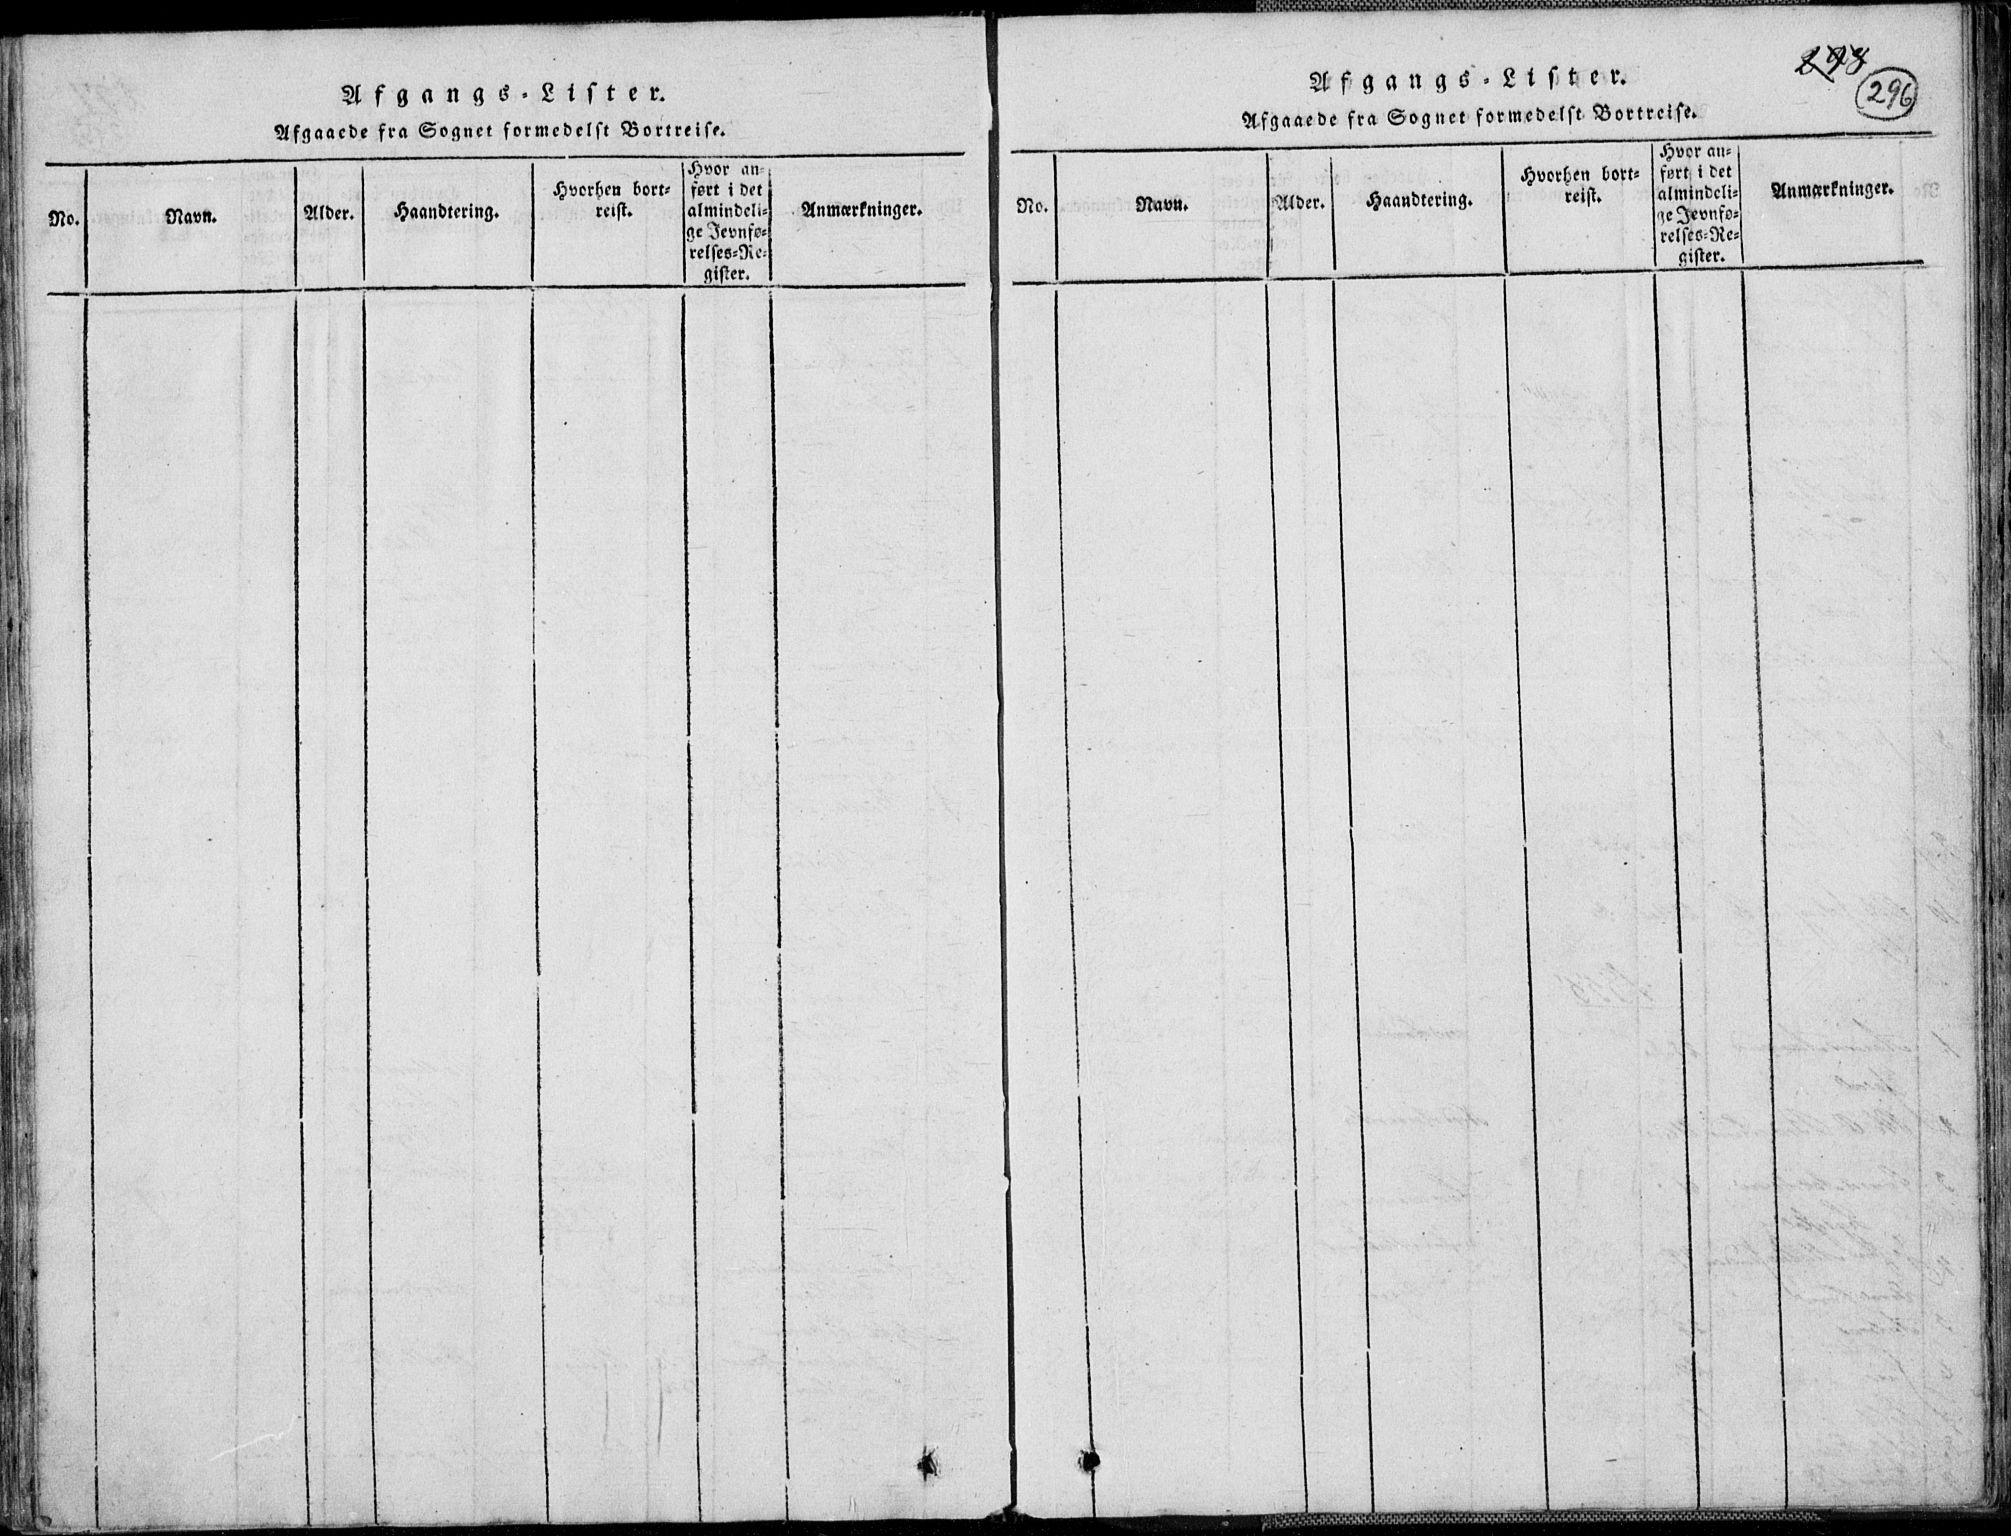 Afgangs-Lister.
Afgaaede fra Sognet formedelst Bortreise.
No.
Navn.
Alder.
Haandtering.
Hvorhen bort=
reist.
Hvor an=
ført i det
almindeli=
ge Jevnfø=
relses=Re=
gister.
Anmærkninger.
298
296
Afgangs-Lister.
Afgaaede fra Sognet formedelst Bortreise.
No.
Navn.
Alder.
Haandtering.
Hvorhen bort=
reist.
Hvor an=
ført i det
almindeli=
ge Jevnfø=
relses=Re=
gister.
Anmærkninger.